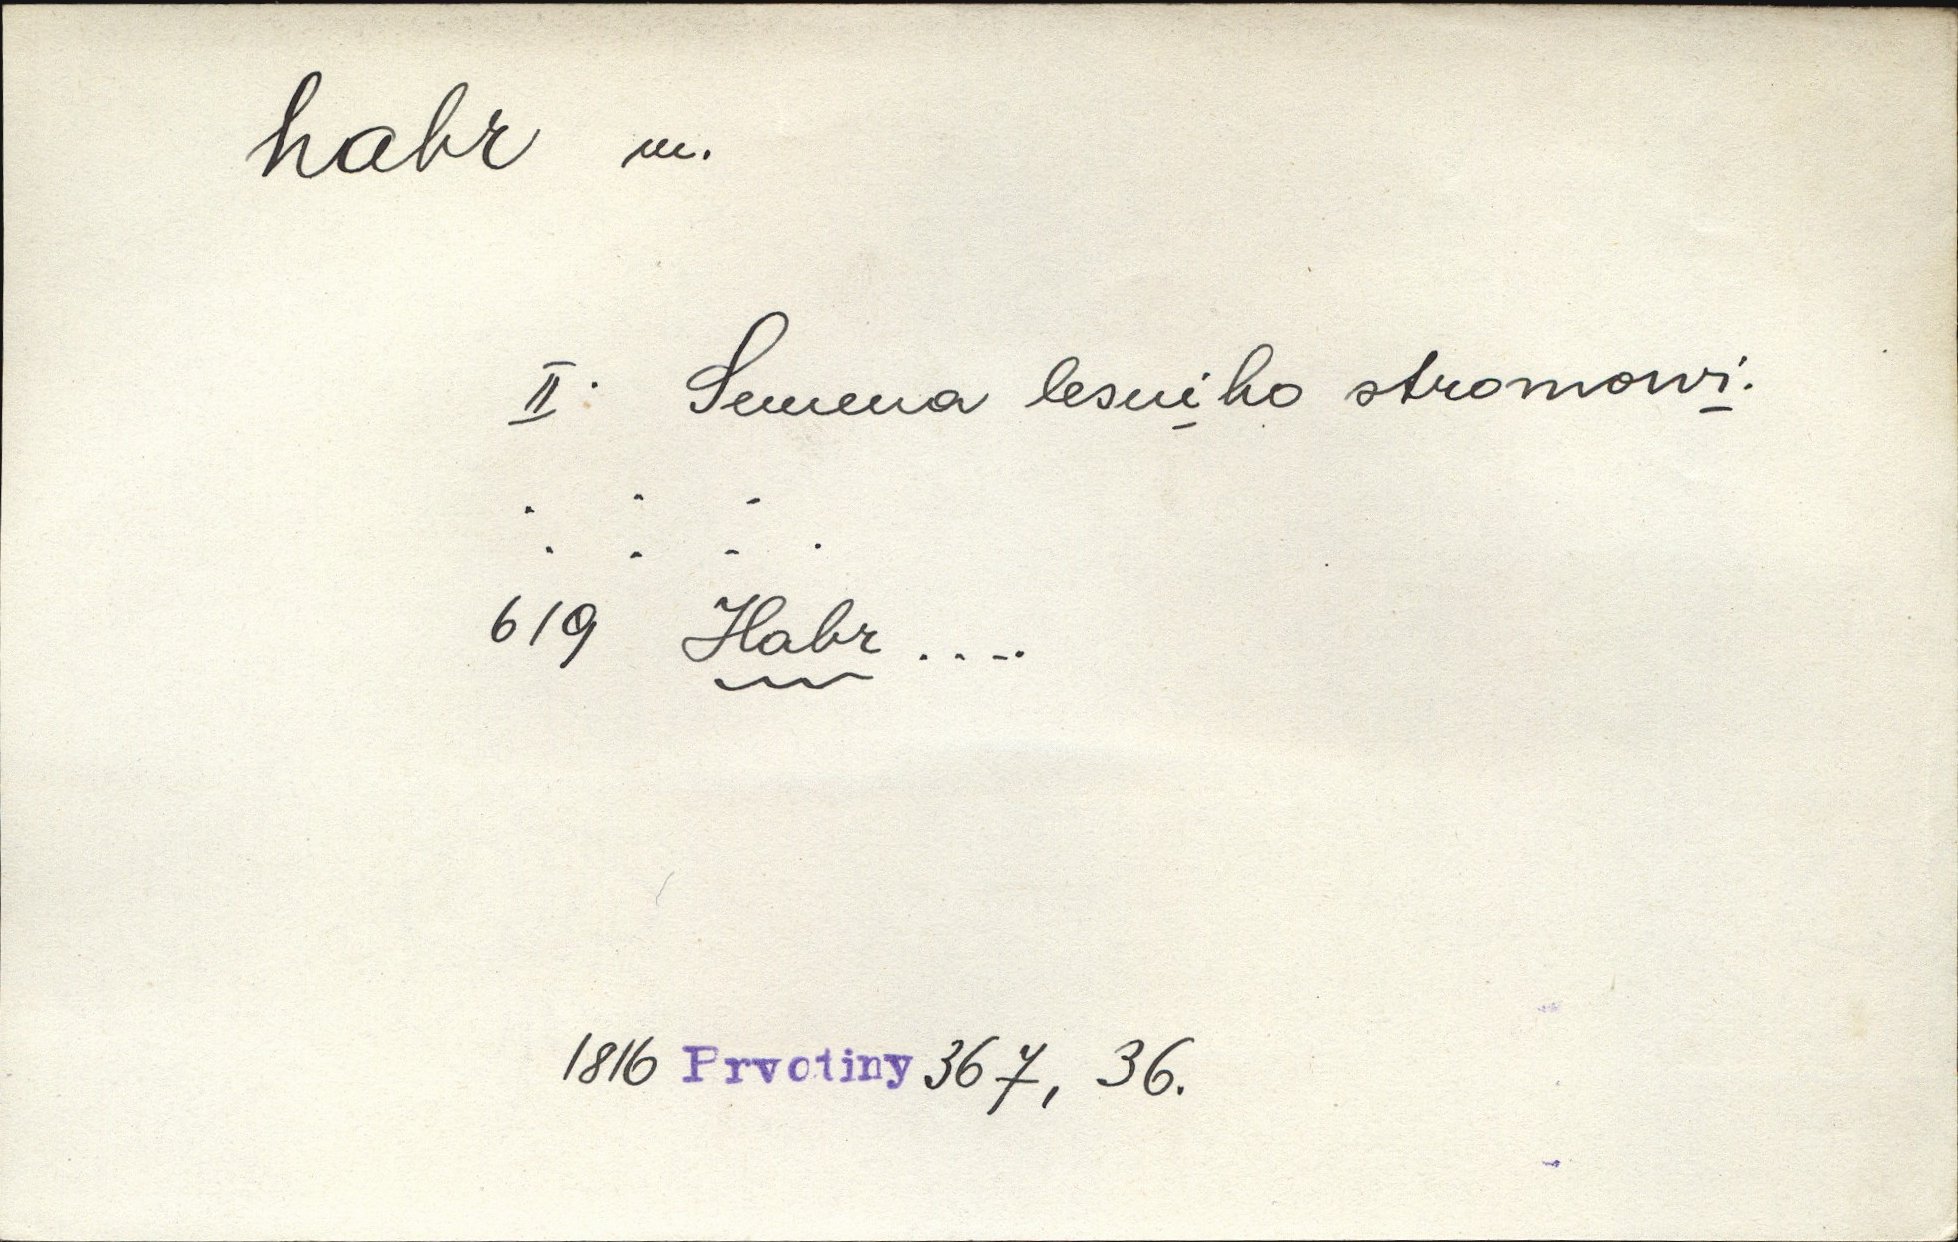 habr m.
II. Semena lesniho stromowi.
. . .
. . . .
619 Habr ....
1816 Prvotiny 367, 36.